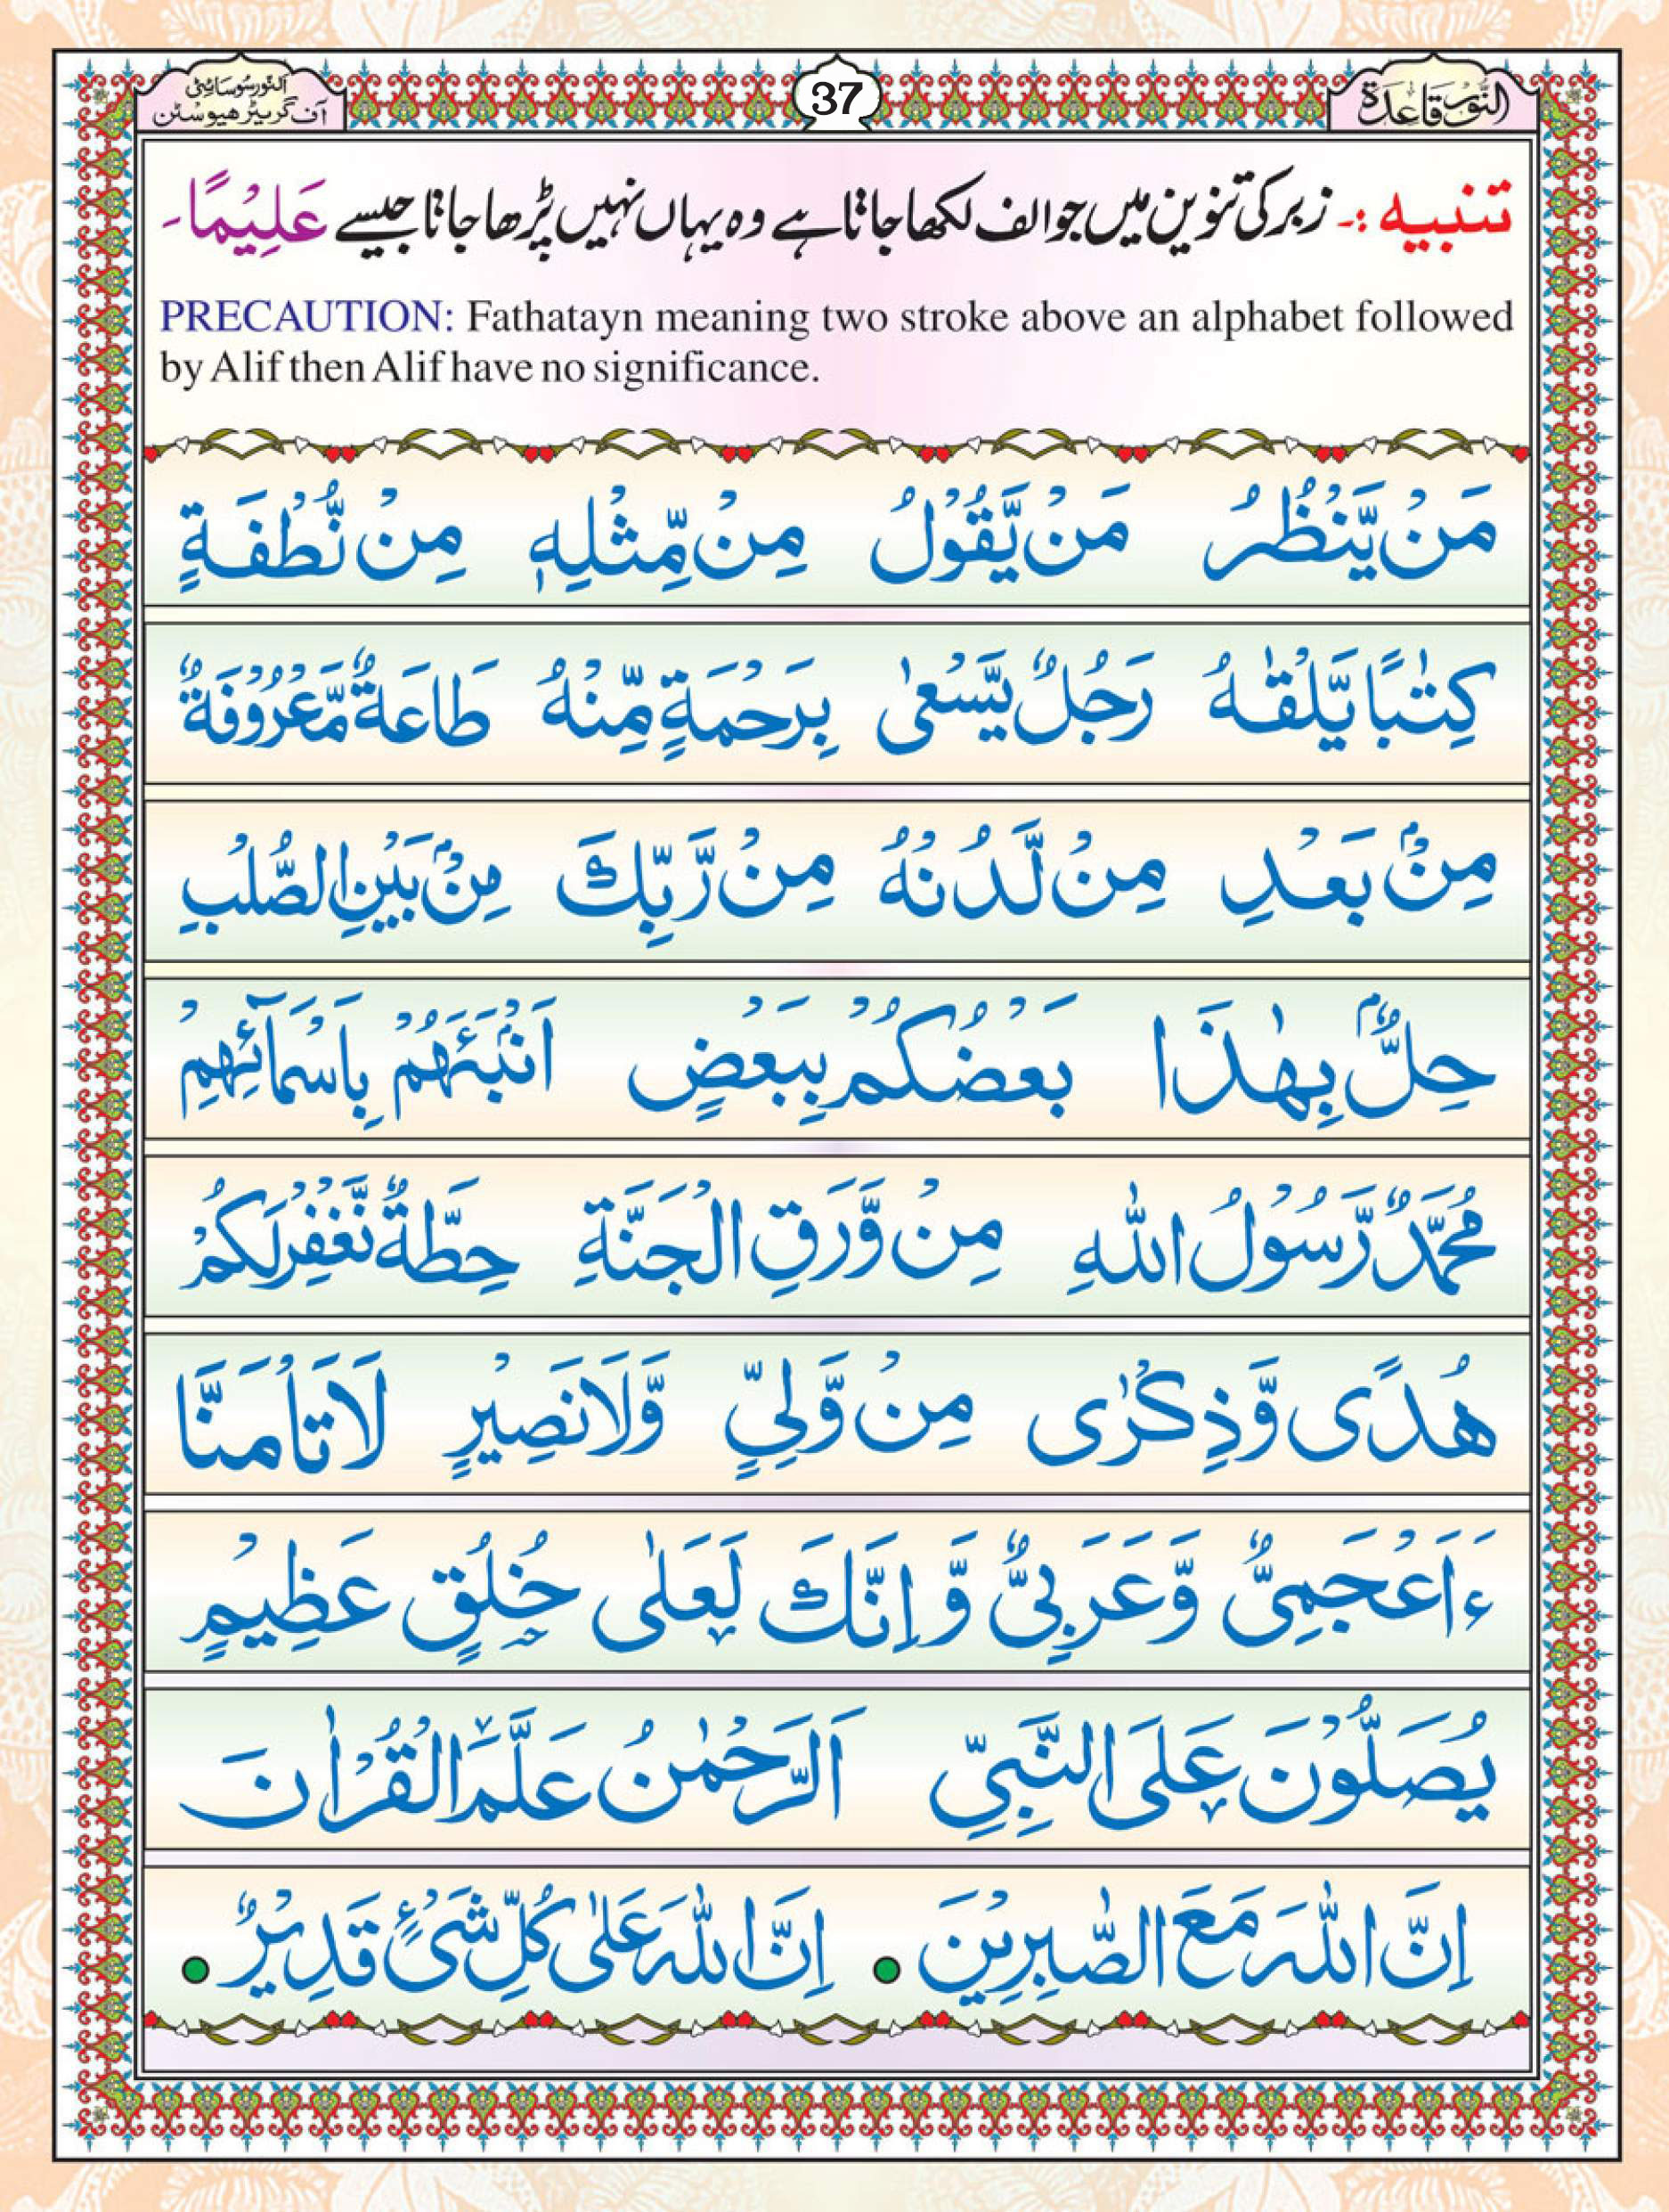 النُّور قَاعِدَة
37
اَلنُّور سُوسَائِٹی
آف گریٹر ھیوسٹن
تنبیہ :۔ زبر کی تنوین میں جو الف لکھا جاتا ہے وہ یہاں نہیں پڑھا جاتا جیسے عَلِيْمًا۔
PRECAUTION: Fathatayn meaning two stroke above an alphabet followed
by Alif then Alif have no significance.
مَنْ يَّنْظُرُ مَنْ يَّقُوْلُ مِنْ مِّثْلِهٖ مِنْ نُّطْفَةٍ
كِتٰبًا يَّلْقٰهُ رَجُلٌ يَّسْعٰى بِرَحْمَةٍ مِّنْهُ طَاعَةٌ مَّعْرُوْفَةٌ
مِنْۢ بَعْدِ مِنْ لَّدُنْهُ مِنْ رَّبِّكَ مِنْۢ بَيْنِ الصُّلْبِ
حِلٌّۢ بِهٰذَا بَعْضُكُمْ بِبَعْضٍ اَنْۢبَئَهُمْ بِاَسْمَآئِهِمْ
مُحَمَّدٌ رَّسُوْلُ اللّٰهِ مِنْ وَّرَقِ الْجَنَّةِ حِطَّةٌ نَّغْفِرْلَكُمْ
هُدًى وَّذِكْرٰى مِنْ وَّلِيٍّ وَّلَا نَصِيْرٍ لَا تَأْمَنَّا
ءَاَعْجَمِىٌّ وَّعَرَبِىٌّ وَّاِنَّكَ لَعَلٰى خُلُقٍ عَظِيْمٍ
يُصَلُّوْنَ عَلَى النَّبِىِّ اَلرَّحْمٰنُ عَلَّمَ الْقُرْاٰنَ
اِنَّ اللّٰهَ مَعَ الصّٰبِرِيْنَ • اِنَّ اللّٰهَ عَلٰى كُلِّ شَىْءٍ قَدِيْرٌ •